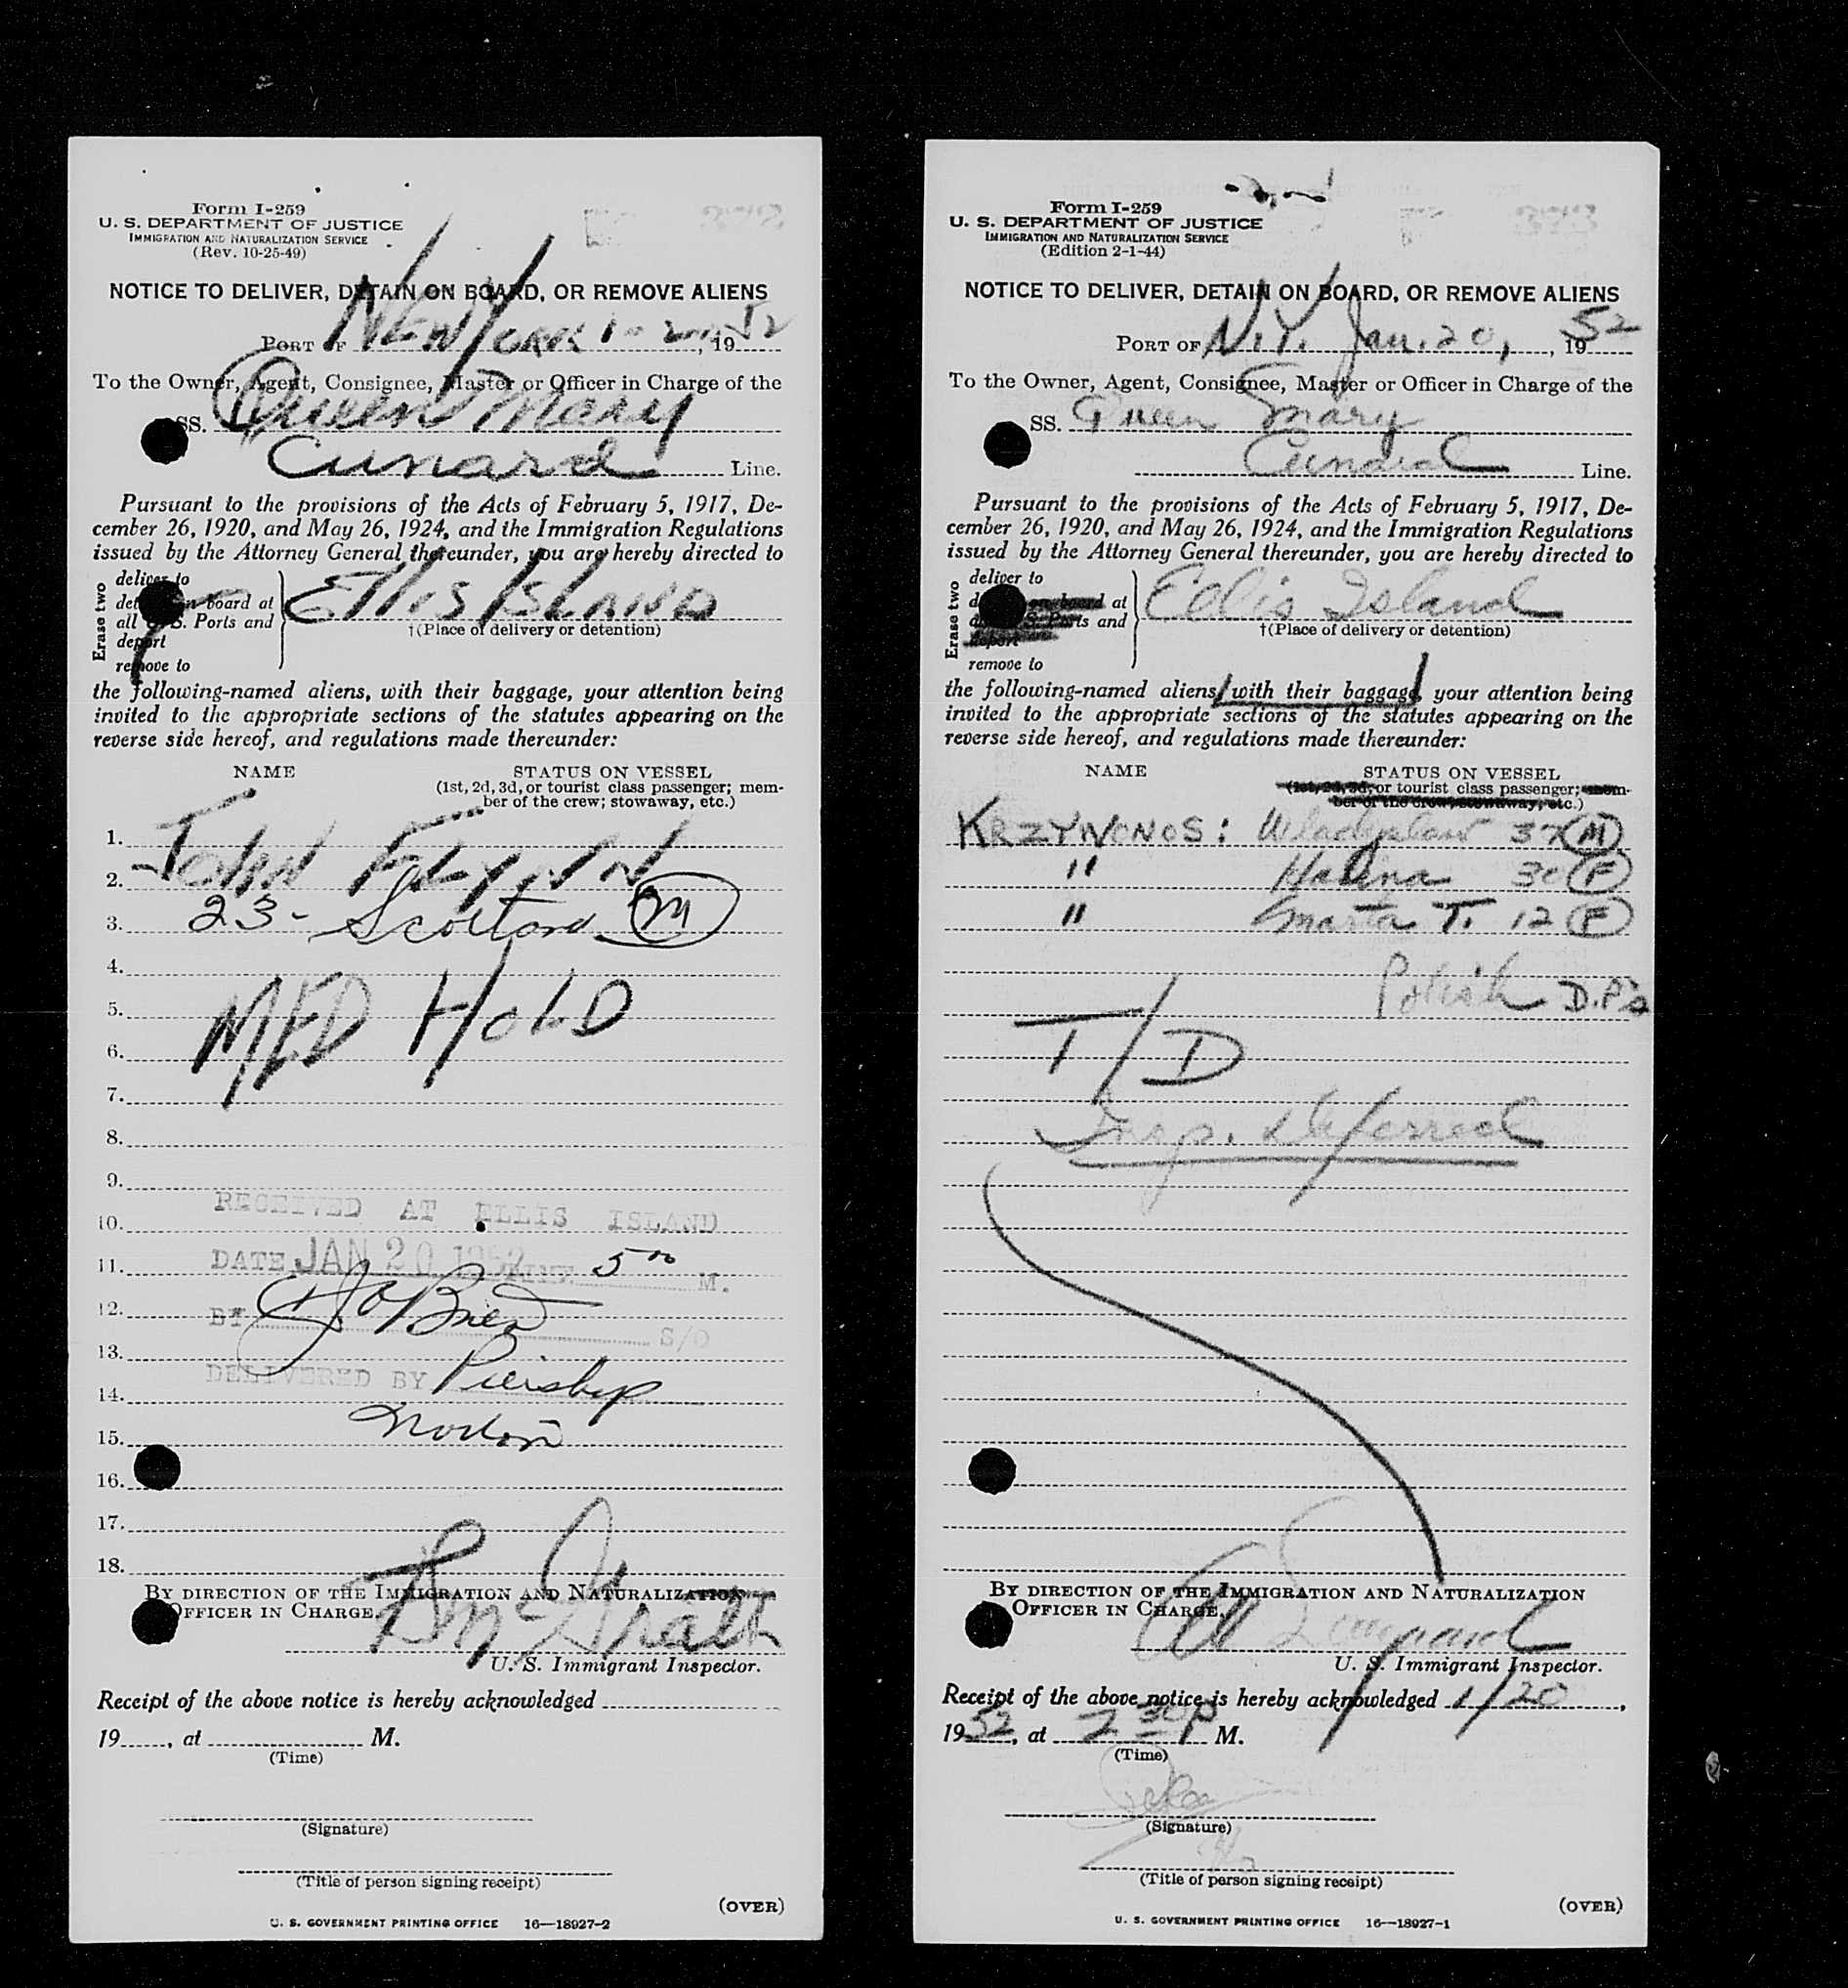 Form I-259
U. S. DEPARTMENT OF JUSTICE
IMMIGRATION AND NATURALIZATION SERVICE
(Rev. 10-25-49)
NOTICE TO DELIVER, DETAIN ON BOARD, OR REMOVE ALIENS
PORT OF New York 1-20, 1952
To the Owner, Agent, Consignee, Master or Officer in Charge of the
SS. Queen Mary
Cunard Line.
Pursuant to the provisions of the Acts of February 5, 1917, De-
cember 26, 1920, and May 26, 1924, and the Immigration Regulations
issued by the Attorney General thereunder, you are hereby directed to
Erase two
deliver to
on board at
all U.S. Ports and
deport
remove to
ELLIS ISLAND
†(Place of delivery or detention)
the following-named aliens, with their baggage, your attention being
invited to the appropriate sections of the statutes appearing on the
reverse side hereof, and regulations made thereunder:
NAME STATUS ON VESSEL
(1st, 2d, 3d, or tourist class passenger; mem-
ber of the crew; stowaway, etc.)
1.
2. JOHN FLYNN
3. 23- Scotland M
4.
5. MED HOLD
6.
7.
8.
9.
RECEIVED AT ELLIS ISLAND
10.
11. DATE JAN 20 1952 TIME 5 00 M.
12. BY J O'Brien S/O
13.
DELIVERED BY
14.
15. Norton
16.
17.
18.
BY DIRECTION OF THE IMMIGRATION AND NATURALIZATION
OFFICER IN CHARGE.
McGrath
U. S. Immigrant Inspector.
Receipt of the above notice is hereby acknowledged
19, at M.
(Time)
(Signature)
(Title of person signing receipt)
(OVER)
U. S. GOVERNMENT PRINTING OFFICE 16—18927-2
Form I-259
U. S. DEPARTMENT OF JUSTICE
IMMIGRATION AND NATURALIZATION SERVICE
(Edition 2-1-44)
NOTICE TO DELIVER, DETAIN ON BOARD, OR REMOVE ALIENS
PORT OF N.Y. Jan. 20, , 1952
To the Owner, Agent, Consignee, Master or Officer in Charge of the
SS. Queen Mary
Cunard Line.
Pursuant to the provisions of the Acts of February 5, 1917, De-
cember 26, 1920, and May 26, 1924, and the Immigration Regulations
issued by the Attorney General thereunder, you are hereby directed to
Erase two
deliver to
on board at
U.S. Ports and
deport
remove to
Ellis Island
†(Place of delivery or detention)
the following-named aliens, with their baggage, your attention being
invited to the appropriate sections of the statutes appearing on the
reverse side hereof, and regulations made thereunder:
NAME STATUS ON VESSEL
(1st, 2d, 3d, or tourist class passenger; mem-
ber of the crew; stowaway, etc.)
KRZYWONOS: Wladyslaw 37 M
" Halina 30 F
" Marta T. 12 F
Polish D.P's
T/D
Insp. Deferred
BY DIRECTION OF THE IMMIGRATION AND NATURALIZATION
OFFICER IN CHARGE.
U. S. Immigrant Inspector.
Receipt of the above notice is hereby acknowledged 1/20,
1952, at 2 30 p M.
(Time)
(Signature)
(Title of person signing receipt)
(OVER)
U. S. GOVERNMENT PRINTING OFFICE 16—18927-1